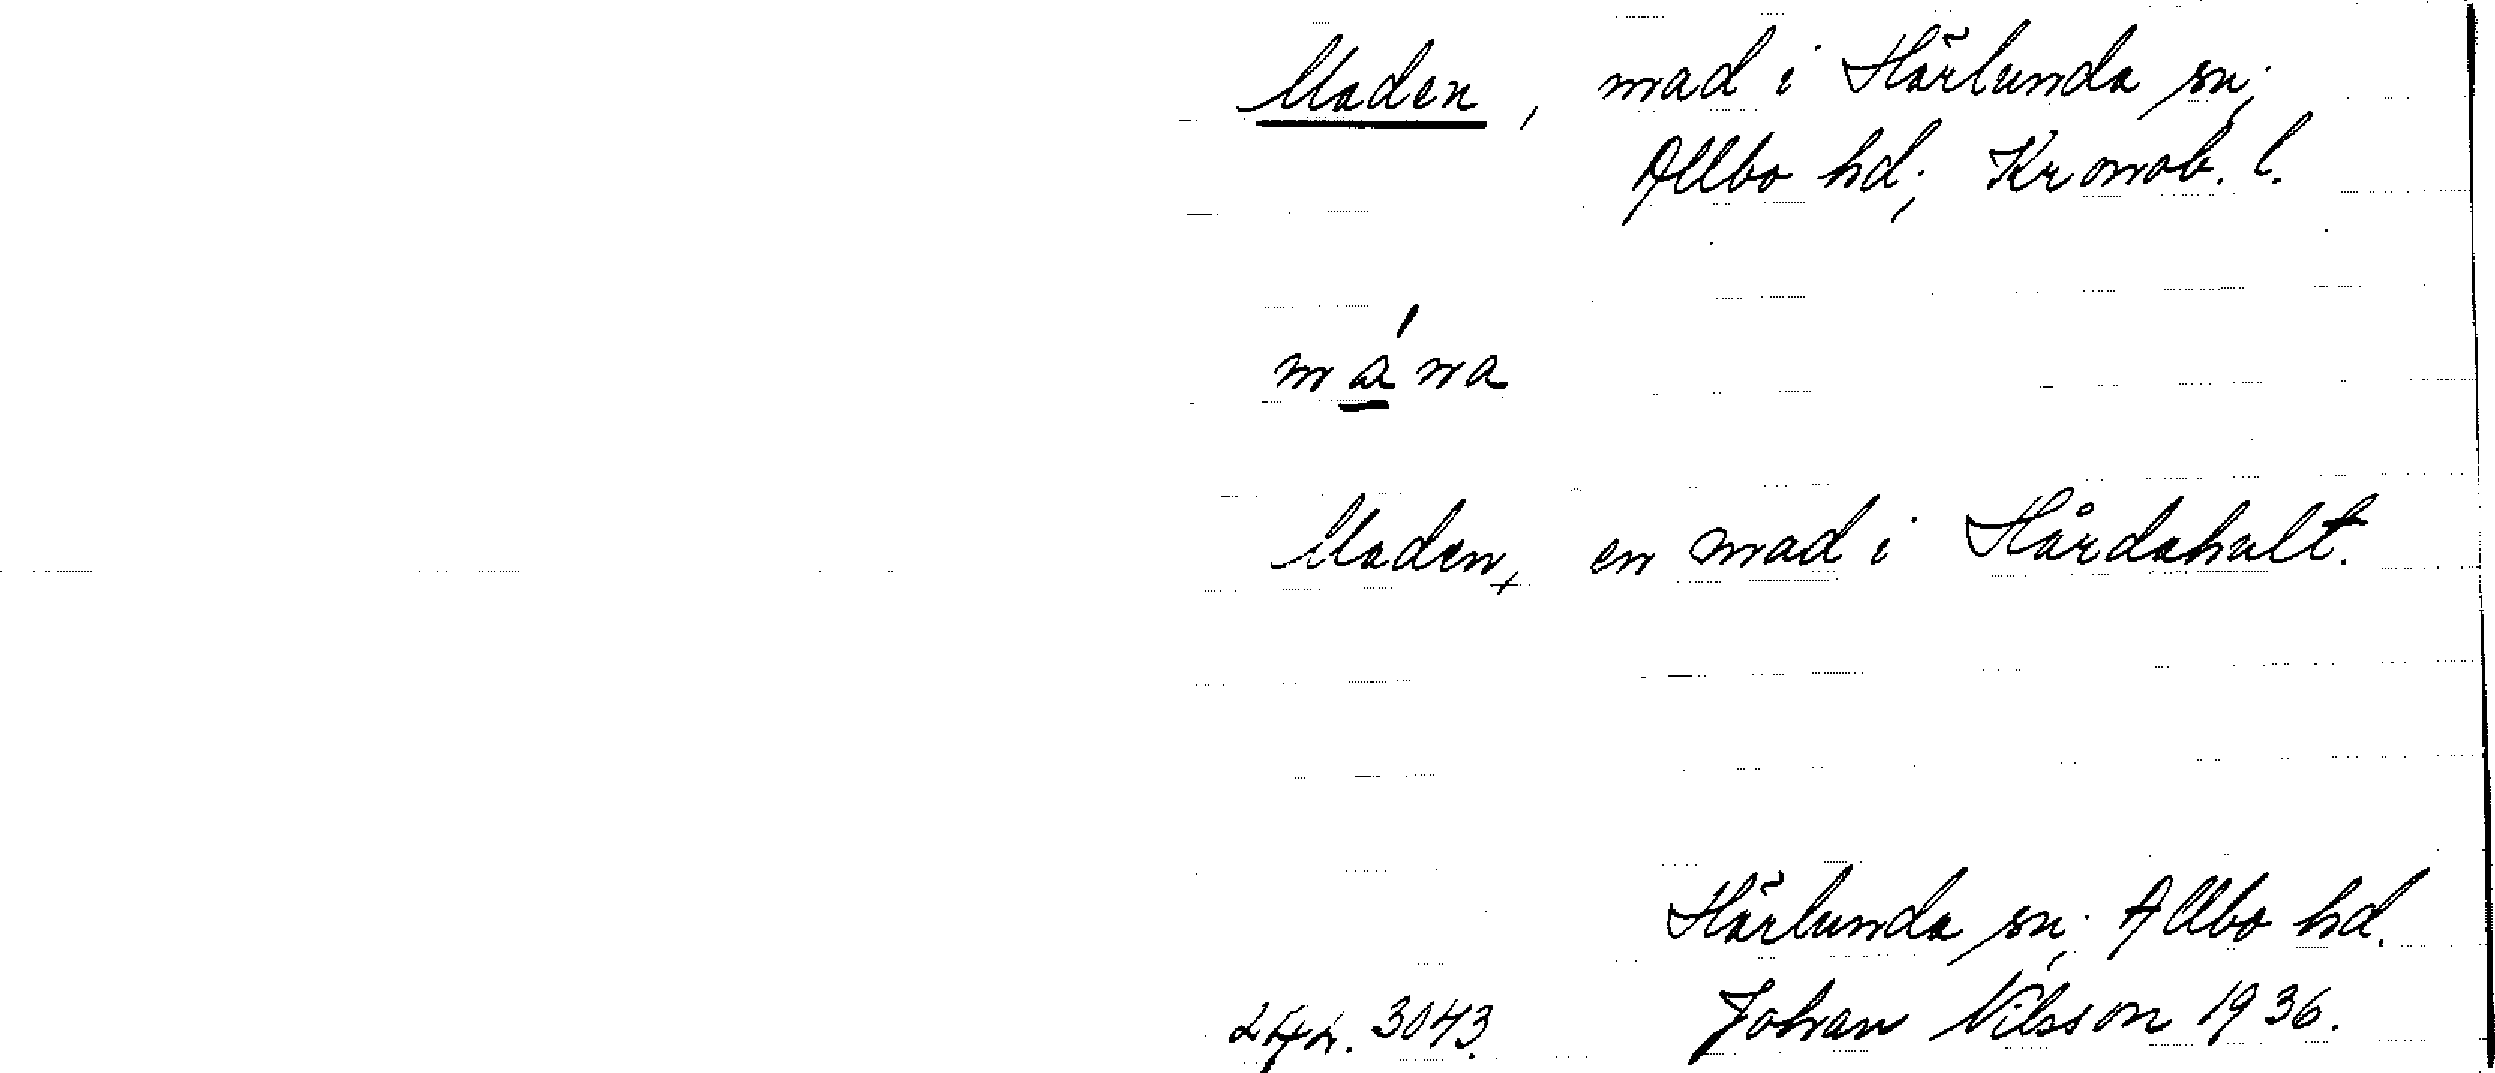 Maden, mad i Härlunda sn.,
Allbo hd., Kronob. l.
mána
Maden, en mad i Hårdahult.
Härlunda sn., Allbo hd.
3043. Johan Nilsson 1936.